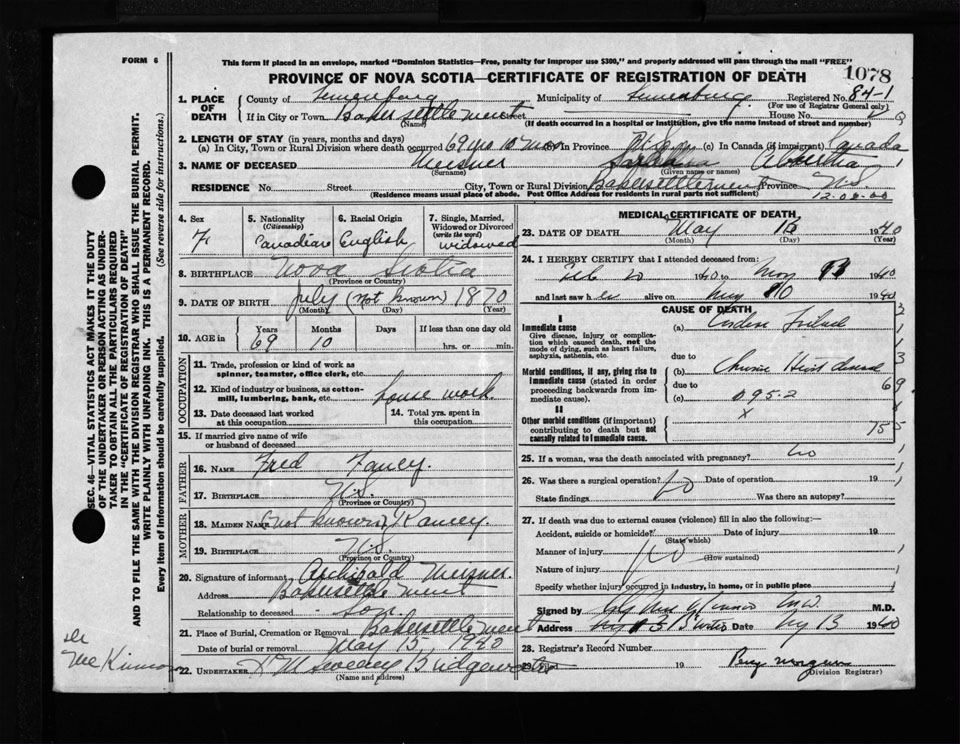 FORM 6
This form if placed in an envelope, marked "Dominion Statistics—Free, penalty for improper use $300," and properly addressed will pass through the mail "FREE"
PROVINCE OF NOVA SCOTIA—CERTIFICATE OF REGISTRATION OF DEATH
1078
1. PLACE OF DEATH
County of Lunenburg Municipality of Lunenburg Registered No. 84-1
(For use of Registrar General only)
If in City or Town Bakersettlement Street House No.
(Name) (If death occurred in a hospital or institution, give the name instead of street and number)
2. LENGTH OF STAY (in years, months and days)
(a) In City, Town or Rural Division where death occurred 69 yrs 10 mos (b) In Province (c) In Canada (if immigrant) Canada
3. NAME OF DECEASED Meisner Barbara Albertha
(Surname) (Given name or names)
RESIDENCE No. Street City, Town or Rural Division Bakersettlement Province N.S.
(Residence means usual place of abode. Post Office Address for residents in rural parts not sufficient)
4. Sex F
5. Nationality (Citizenship) Canadian
6. Racial Origin English
7. Single, Married, Widowed or Divorced (write the word) widowed
8. BIRTHPLACE Nova Scotia
(Province or Country)
9. DATE OF BIRTH July (not known) 1870
(Month) (Day) (Year)
10. AGE in Years Months Days If less than one day old
69 10 hrs. or min.
OCCUPATION
11. Trade, profession or kind of work as spinner, teamster, office clerk, etc.
12. Kind of industry or business, as cotton-mill, lumbering, bank, etc. house work
13. Date deceased last worked at this occupation
14. Total yrs. spent in this occupation
15. If married give name of wife or husband of deceased
FATHER
16. NAME Fred Fancy.
17. BIRTHPLACE N.S.
(Province or Country)
MOTHER
18. MAIDEN NAME (not known)
19. BIRTHPLACE N.S.
(Province or Country)
20. Signature of informant Archibald Meisner.
Address Bakersettlement
Relationship to deceased son.
21. Place of Burial, Cremation or Removal Bakersettlement
Date of burial or removal May 15, 1940
22. UNDERTAKER Sweeney Bridgewater
(Name and address)
MEDICAL CERTIFICATE OF DEATH
23. DATE OF DEATH May 1940
(Month) (Day) (Year)
24. I HEREBY CERTIFY that I attended deceased from:
Feb 20 1940 to May 1940
and last saw her alive on May 10 1940
CAUSE OF DEATH
I
Immediate cause
Give disease, injury or complication which caused death, not the mode of dying, such as heart failure, asphyxia, asthenia, etc.
(a)
due to
Morbid conditions, if any, giving rise to immediate cause (stated in order proceeding backwards from immediate cause).
(b) Chronic Heart disease
due to
(c) 095.2
X
II
Other morbid conditions (if important) contributing to death but not causally related to immediate cause.
25. If a woman, was the death associated with pregnancy? no
26. Was there a surgical operation? no Date of operation 19
State findings Was there an autopsy?
27. If death was due to external causes (violence) fill in also the following:—
Accident, suicide or homicide? Date of injury 19
(State which)
Manner of injury no
(How sustained)
Nature of injury
Specify whether injury occurred in industry, in home, or in public place
Signed by M.D.
Address Date May 13 1940
28. Registrar's Record Number
29. Filed 19
(Division Registrar)
SEC. 46—VITAL STATISTICS ACT MAKES IT THE DUTY
OF THE UNDERTAKER OR PERSON ACTING AS UNDERTAKER TO OBTAIN ALL THE PARTICULARS REQUIRED
IN THE "CERTIFICATE OF REGISTRATION OF DEATH"
AND TO FILE THE SAME WITH THE DIVISION REGISTRAR WHO SHALL ISSUE THE BURIAL PERMIT.
WRITE PLAINLY WITH UNFADING INK. THIS IS A PERMANENT RECORD.
Every item of information should be carefully supplied. (See reverse side for instructions.)
Dr
McKinnon